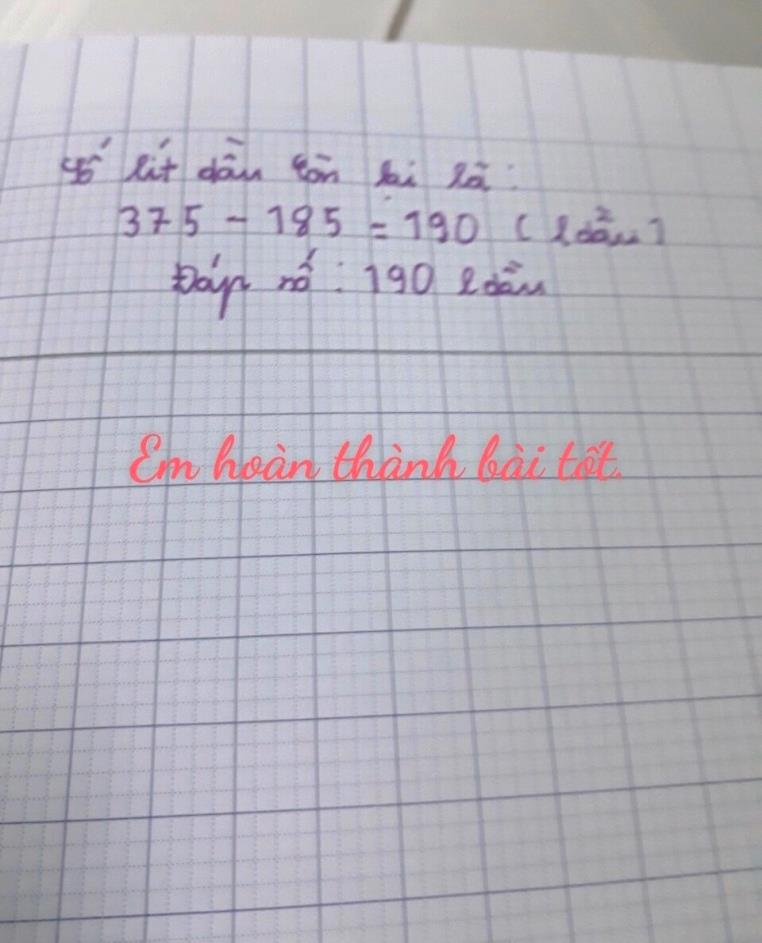 Số lít dầu còn lại là:
375 - 185 = 190 ( l dầu )
Đáp số : 190 l dầu
Em hoàn thành bài tốt.